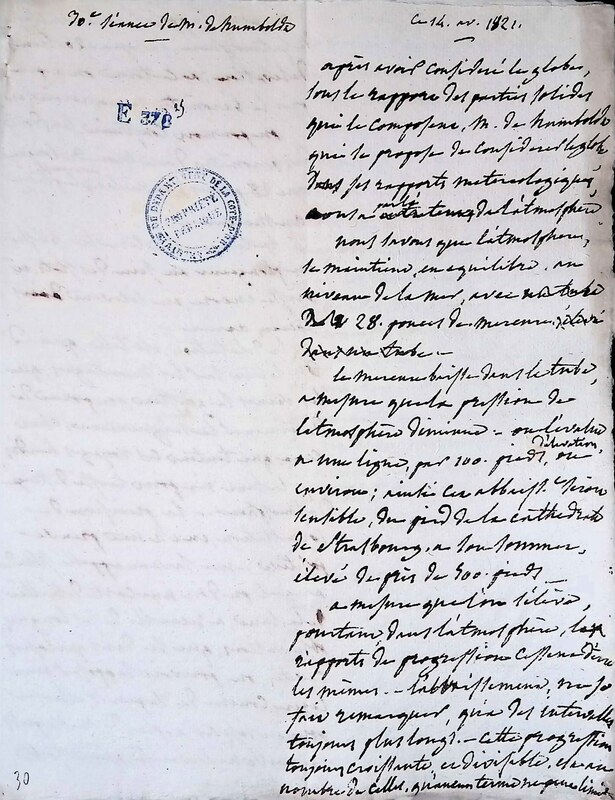 30.e Séance de M. de humboldt
Ce 14. av. 1821.
E 378 15
après avoir consideré le globe,
sous le rapport des parties solides
qui le composent, M. de humboldt
qui se propose de considerer le globe
dans ses rapports meteorologiques,
nous a parlé de l'atmosphère
nous savons que l'atmosphere,
se maintient, en equilibre, au
niveau de la mer, avec
28. pouces de mercure
dans un tube. -
le mercure baisse dans le tube,
a mesure que la pression de
l'atmosphère diminue. - on l'evalue
a une ligne, par 100. pieds, d'élévation, ou
environ; ainsi cet abbaiss.t seroit
sensible, du pied de la cathedrale
de Strasbourg, a son sommet,
élevé de près de 500. pieds -
a mesure que l'on s'élève,
pourtant dans l'atmosphère, les
rapports de progression cessent d'être
les mêmes. - l'abbaissement, ne se
fait remarquer, qu'a des intervalles
toujours plus longs. - Cette progression
toujours croissante, est divisible, et a un
nombre de celles, qu'aucun terme ne peut limiter
30